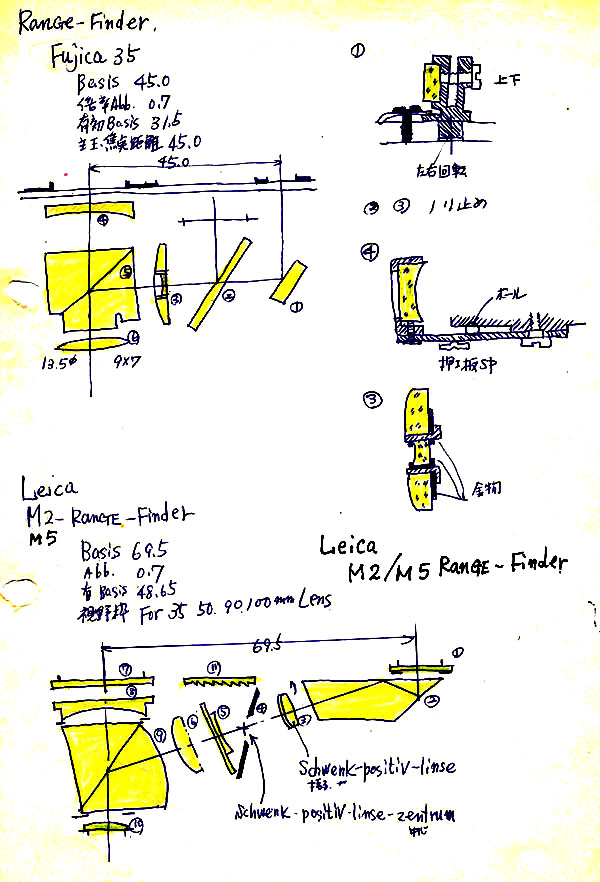 Range-Finder.
Fujica 35
Basis 45.0
倍率Abb. 0.7
有効Basis 31.5
主玉焦点距離 45.0
45.0
④
⑤
③
②
①
⑥
13.5φ 9×7
①
上下
左右回転
② ③ ノリ止め
④
ボール
押エ板SP
③
金物
Leica
M2-Range-Finder
M5
Basis 69.5
Abb. 0.7
有Basis 48.65
視野枠 For 35 50. 90. 100mm Lens
Leica
M2/M5 Range-Finder
69.5
①
⑦
⑪
⑧
④
②
⑤
③
⑥
⑨
⑩
Schwenk-positiv-linse
Schwenk-positiv-linse-zentrum
中心